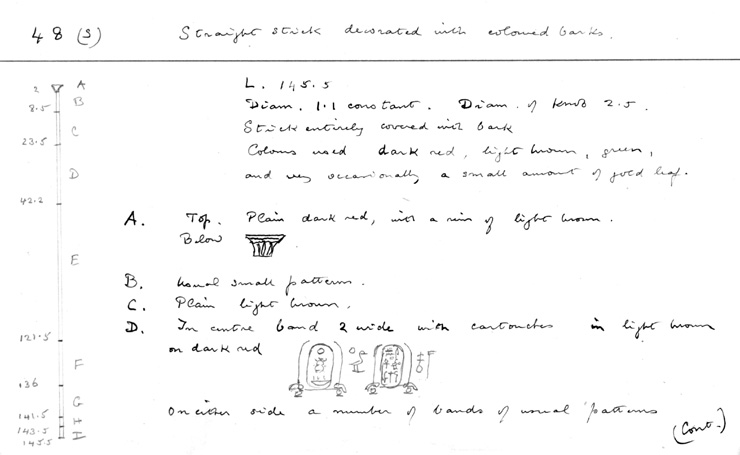 48 (s) Straight stick decorated with coloured barks.
L. 145.5
Diam. 1.1 constant. Diam. of knob 2.5.
Stick entirely covered with bark
Colours used dark red, light brown, green,
and very occasionally a small amount of gold leaf.
A. Top. Plain dark red, with a rim of light brown.
Below
B. Usual small patterns.
C. Plain light brown.
D. In centre band 2 wide with cartouches in light brown
on dark red
On either side a number of bands of usual patterns
(Cont.)
2 A
B
8.5
C
23.5
D
42.2
E
121.5
F
136
G
141.5
H
143.5
I
145.5